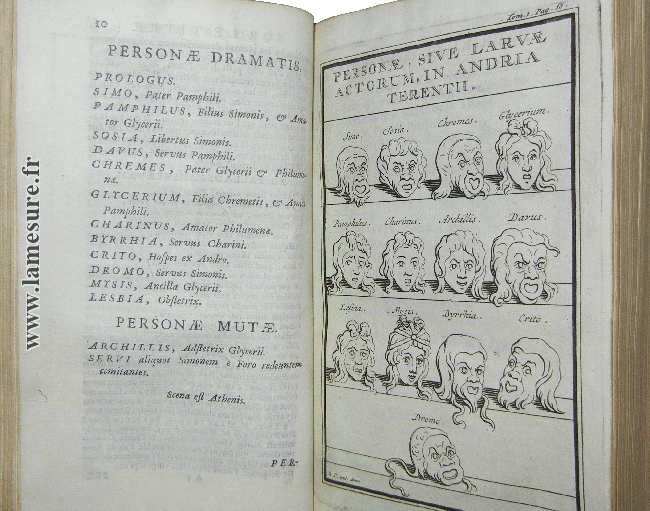 10
PERSONÆ DRAMATIS.
PROLOGUS.
SIMO, Pater Pamphili.
PAMPHILUS, Filius Simonis, & Ama-
tor Glycerii.
SOSIA, Libertus Simonis.
DAVUS, Servus Pamphili.
CHREMES, Pater Glycerii & Philume-
næ.
GLYCERIUM, Filia Chremetis, & Amica
Pamphili.
CHARINUS, Amator Philumenæ.
BYRRHIA, Servus Charini.
CRITO, Hospes ex Andro.
DROMO, Servus Simonis.
MYSIS, Ancilla Glycerii.
LESBIA, Obstetrix.
PERSONÆ MUTÆ.
ARCHILLIS, Adstetrix Glycerii.
SERVI aliquot Simonem è Foro redeuntem
comitantes.
Scena est Athenis.
PER-
Tom. 1. Pag. 10.
PERSONÆ, SIVE LARVÆ
ACTORUM, IN ANDRIA
TERENTII.
Simo. Sosia. Chremes. Glycerium.
Pamphilus. Charinus. Archillis. Davus.
Lesbia. Mysis. Byrrhia. Crito.
Dromo.
www.lamesure.fr